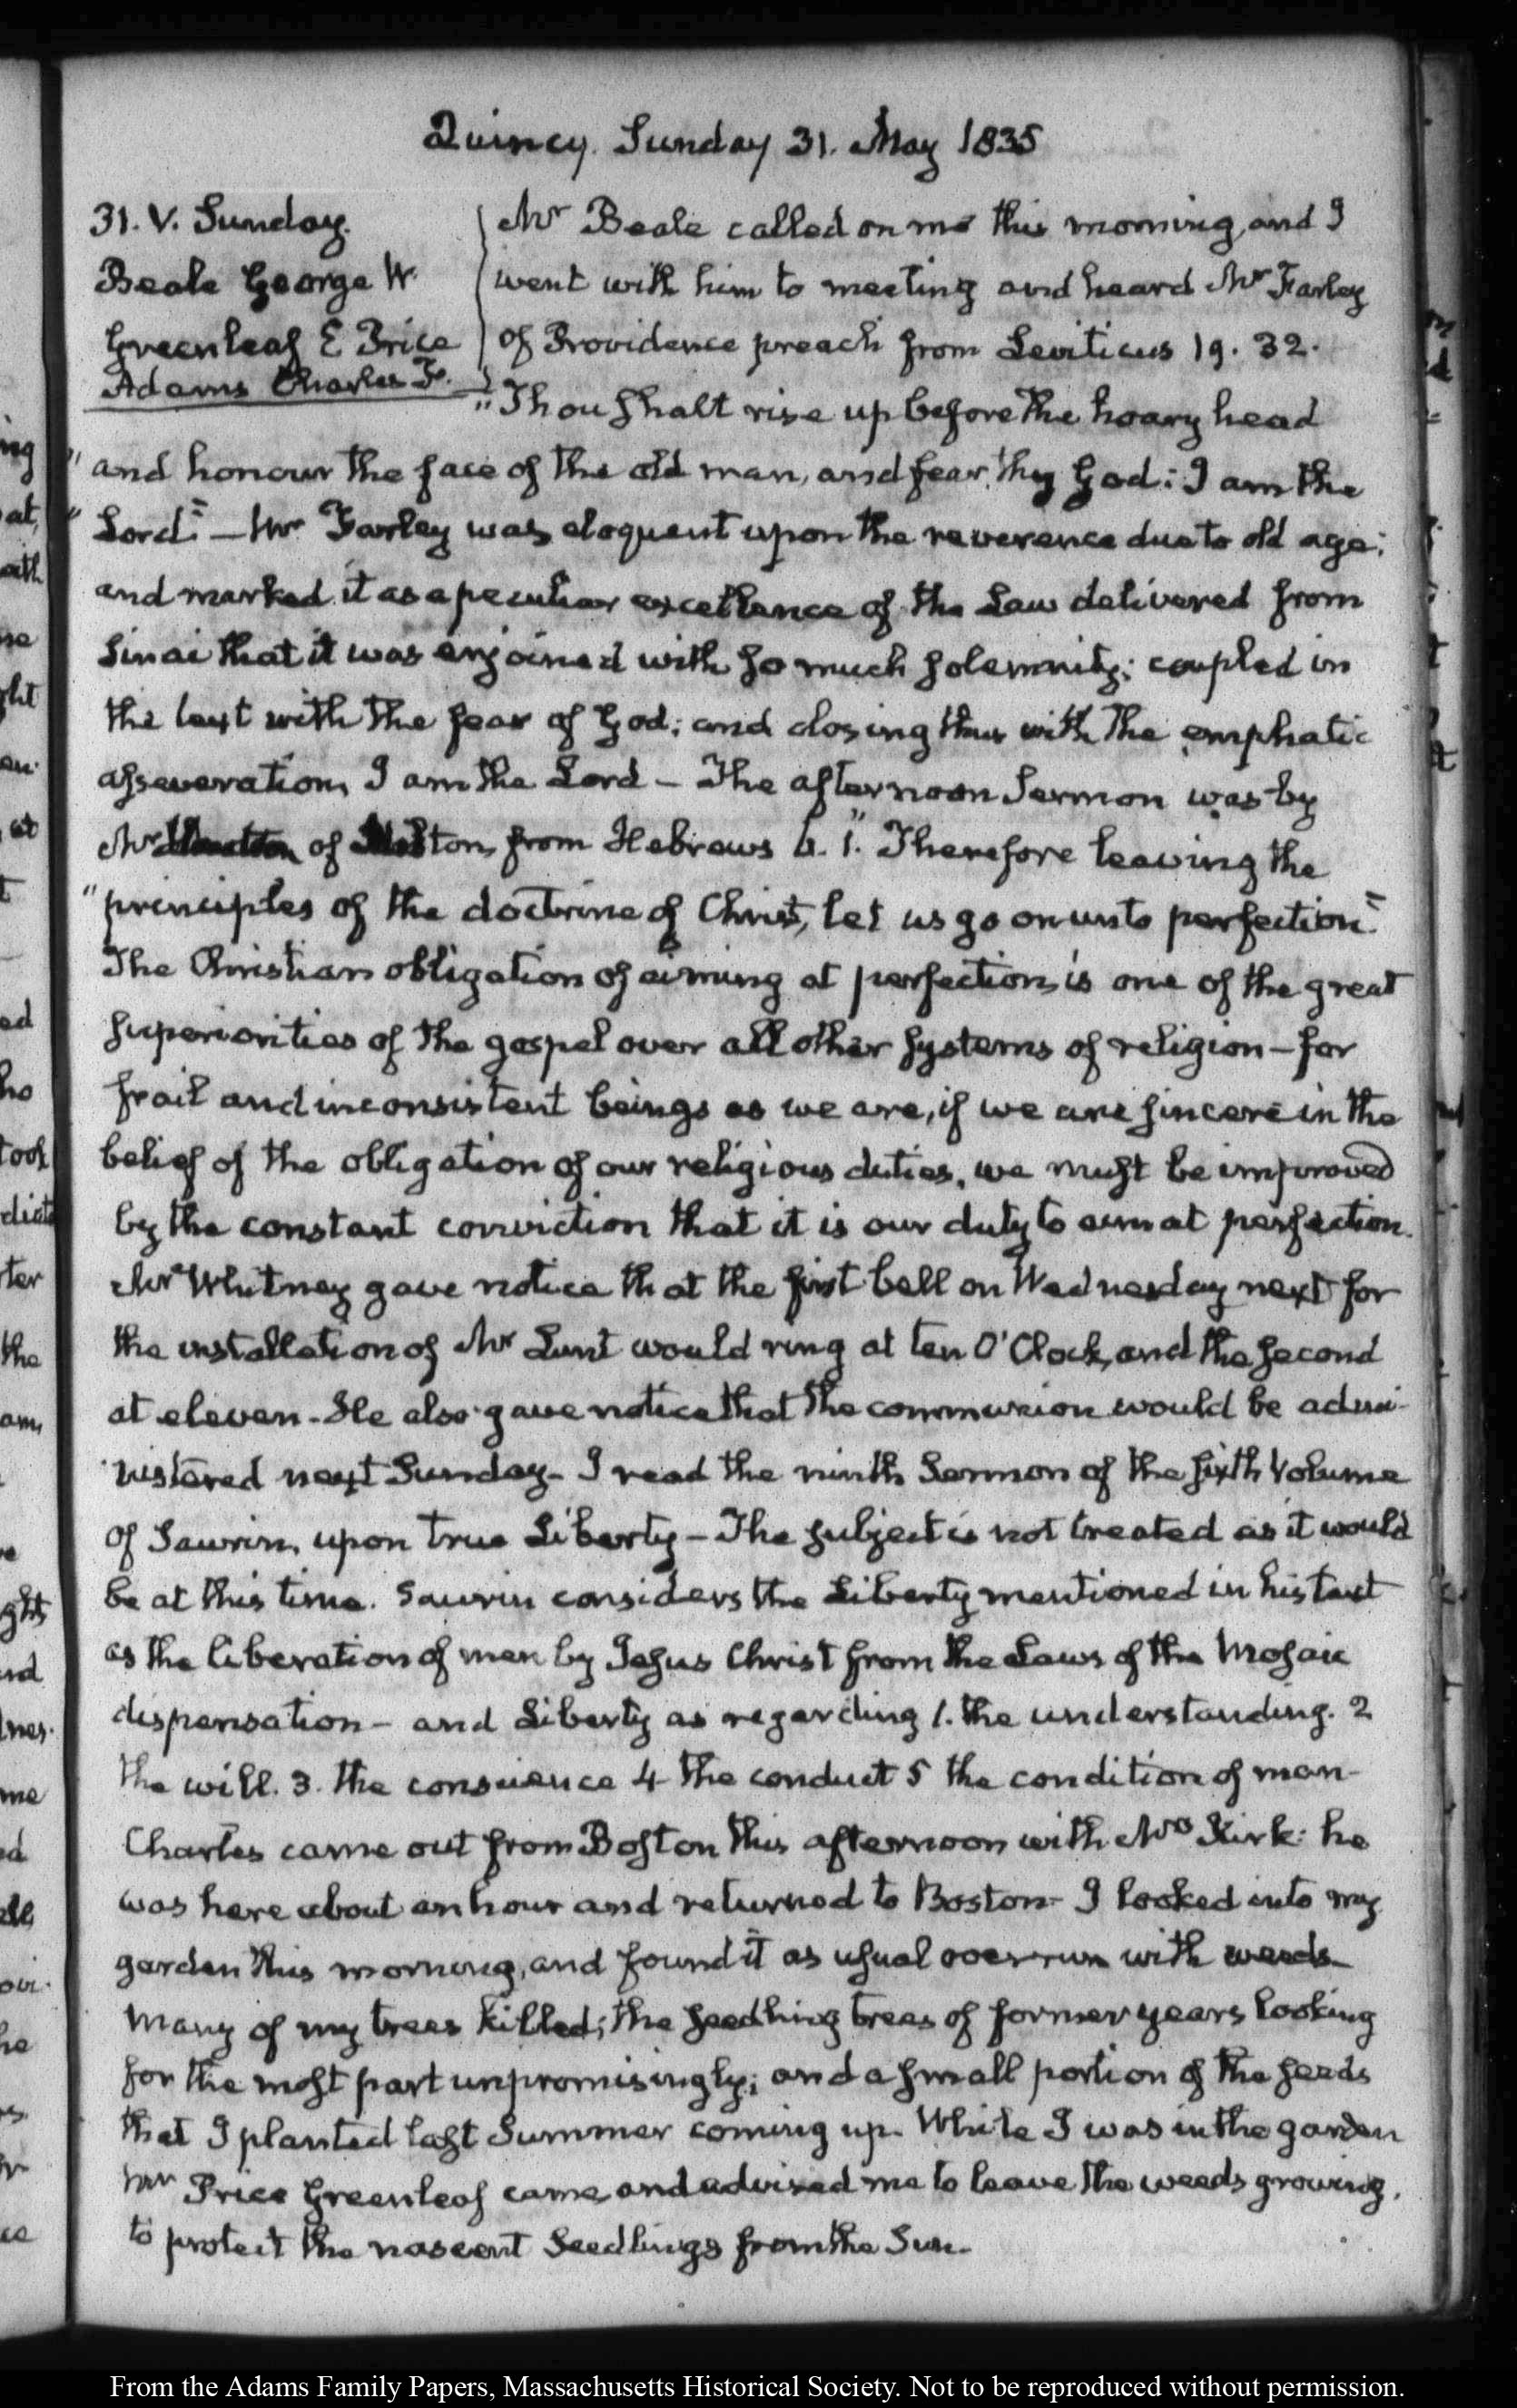 Quincy. Sunday 31. May 1835
31. V. Sunday.
Beale George W.
Greenleaf E Price
Adams Charles F.
Mr Beale called on me this morning, and I
went with him to meeting and heard Mr Farley
of Providence preach from Leviticus 19. 32.
"Thou shalt rise up before the hoary head
"and honour the face of the old man, and fear thy God: I am the
"Lord." — Mr Farley was eloquent upon the reverence due to old age;
and marked it as a peculiar excellence of the Law delivered from
Sinai that it was enjoined with so much solemnity; coupled in
the text with the fear of God; and closing thus with the emphatic
asseveration, I am the Lord — The afternoon Sermon was by
Mr of from Hebrews 6. 1. "Therefore leaving the
"principles of the doctrine of Christ, let us go on unto perfection."
The Christian obligation of aiming at perfection, is one of the great
superiorities of the gospel over all other systems of religion — for
frail and inconsistent beings as we are, if we are sincere in the
belief of the obligation of our religious duties, we must be improved
by the constant conviction that it is our duty to aim at perfection.
Mr Whitney gave notice that the first bell on Wednesday next for
the installation of Mr Lunt would ring at ten O'Clock, and the second
at eleven. He also gave notice that the communion would be admi-
nistered next Sunday — I read the ninth Sermon of the sixth Volume
of Saurin, upon true Liberty — The subject is not treated as it would
be at this time. Saurin considers the Liberty mentioned in his text
as the liberation of man by Jesus Christ from the Laws of the Mosaic
dispensation — and Liberty as regarding 1. the understanding. 2
the will. 3. the conscience 4 the conduct 5 the condition of man —
Charles came out from Boston this afternoon with Mrs Kirk: he
was here about an hour and returned to Boston — I looked into my
garden this morning, and found it as usual overrun with weeds —
many of my trees killed; the seedling trees of former years looking
for the most part unpromisingly; and a small portion of the seeds
that I planted last Summer coming up. While I was in the garden
Mr Price Greenleaf came, and advised me to leave the weeds growing,
to protect the nascent seedlings from the Sun.
From the Adams Family Papers, Massachusetts Historical Society. Not to be reproduced without permission.